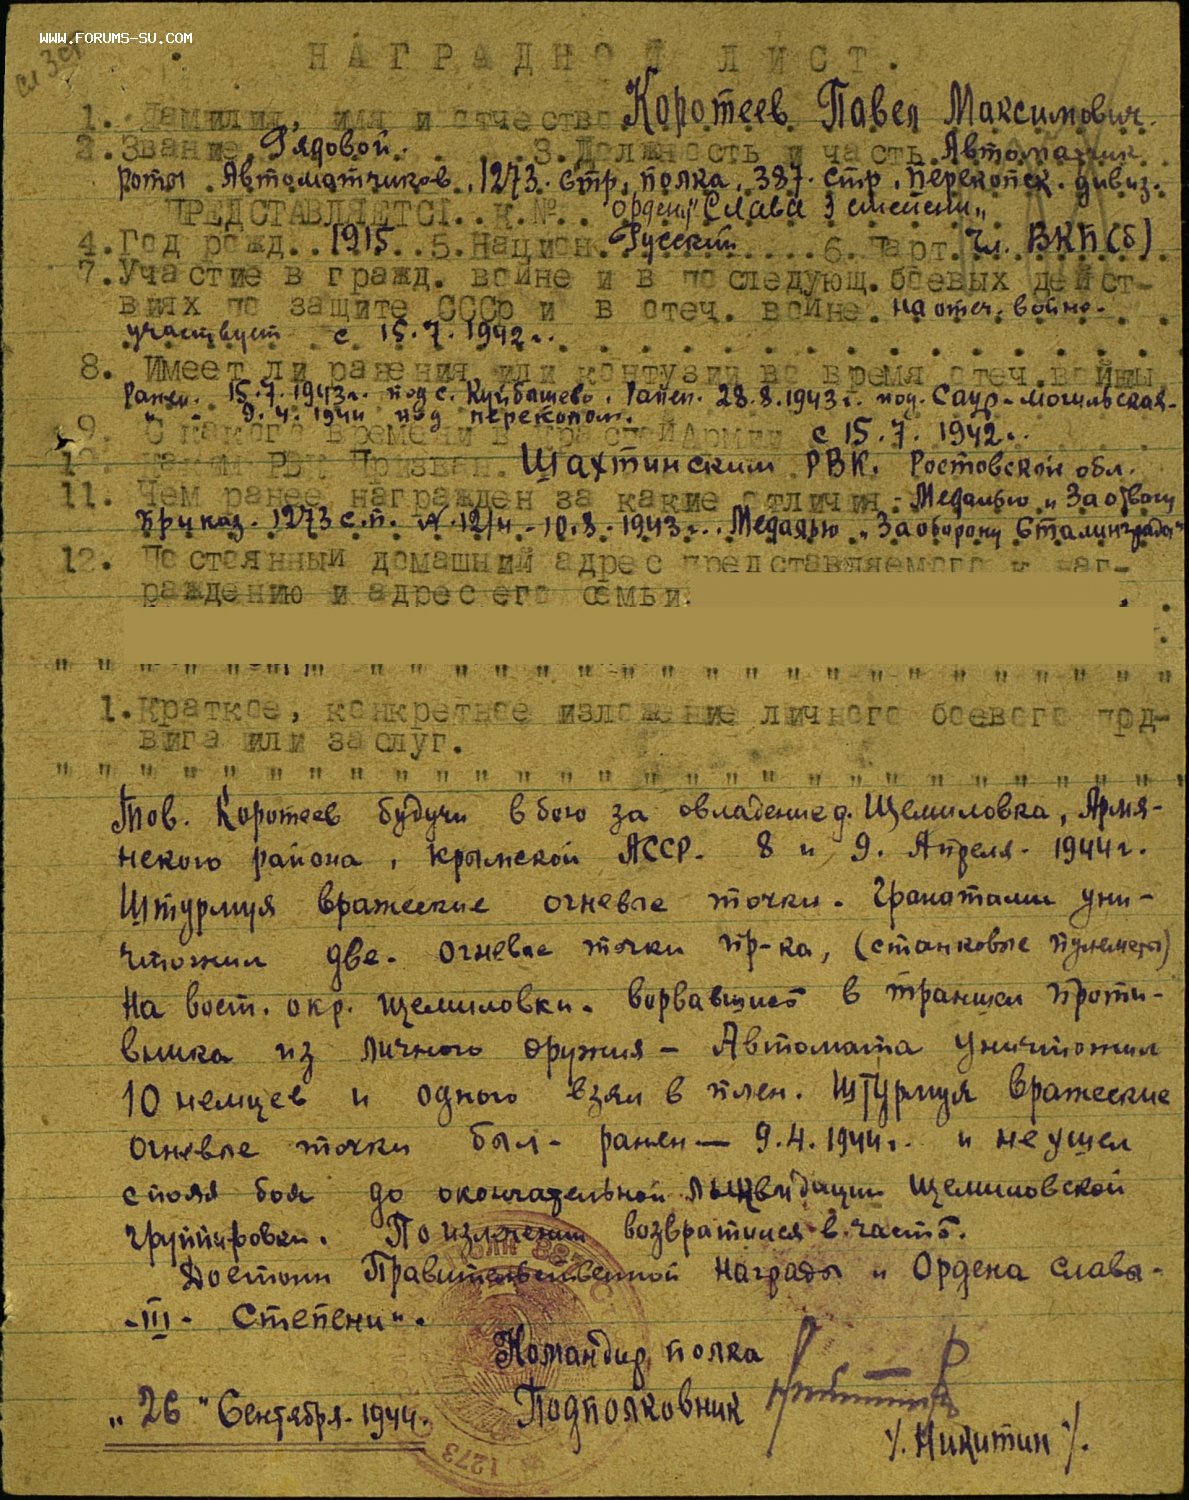 WWW.FORUMS-SU.COM
НАГРАДНОЙ ЛИСТ.
1. Фамилия, имя и отчество Коротеев Павел Максимович.
2. Звание Рядовой. 3. Должность и часть Автоматчик
роты Автоматчиков, 1273. Стр. полка, 387. стр. Перекопск. дивиз.
ПРЕДСТАВЛЯЕТСЯ к. №.. ордену "Слава 3 степени"
4. Год рожд.. 1915 5. Национ. Русский 6. Парт. Чл. ВКП(б)
7. Участие в гражд. войне и в последующ. боевых дейст-
виях по защите СССР и в отеч. войне. на отеч. войне.
участвует с 15.7.1942..
8. Имеет ли ранения или контузии во время отеч. войны
Ранен. 15.7.1943г. под с. Куйбышево. Ранен. 28.8.1943г. под. Саур-могильская-
" " 9.4.1944 под перекопом.
9. С какого времени в Красной Армии с 15.7.1942..
10. Каким РВК Призван. Шахтинским РВК. Ростовской обл.
11. Чем ранее награжден за какие отличия - Медалью "За отвагу
Приказ. 1273 с.п. № 12/н - 10.8.1943г.. Медалью "За оборону Сталинграда"
12. Постоянный домашний адрес представляемого к наг-
раждению и адрес его семьи.
1. Краткое, конкретное изложение личного боевого под-
вига или заслуг.
Тов. Коротеев будучи в бою за овладение д. Щемиловка, Армя-
нского района, Крымской АССР. 8 и 9. Апреля. 1944г.
Штурмуя вражеские огневые точки. Гранатами уни-
чтожил две. огневые точки пр-ка, (станковые пулеметы)
На вост. окр. Щемиловки. ворвавшись в траншеи проти-
вника из личного оружия - Автомата уничтожил
10 немцев и одного взял в плен. Штурмуя вражеские
огневые точки был - ранен — 9.4.1944г. и не ушел
с поля боя до окончательной ликвидации Щемиловской
группировки. По излечении возвратился в часть.
Достоин Правительственной Награды "Ордена Слава-
-III- Степени".
Командир полка
"26" Сентября. 1944. Подполковник
/. Никитин /.
1273